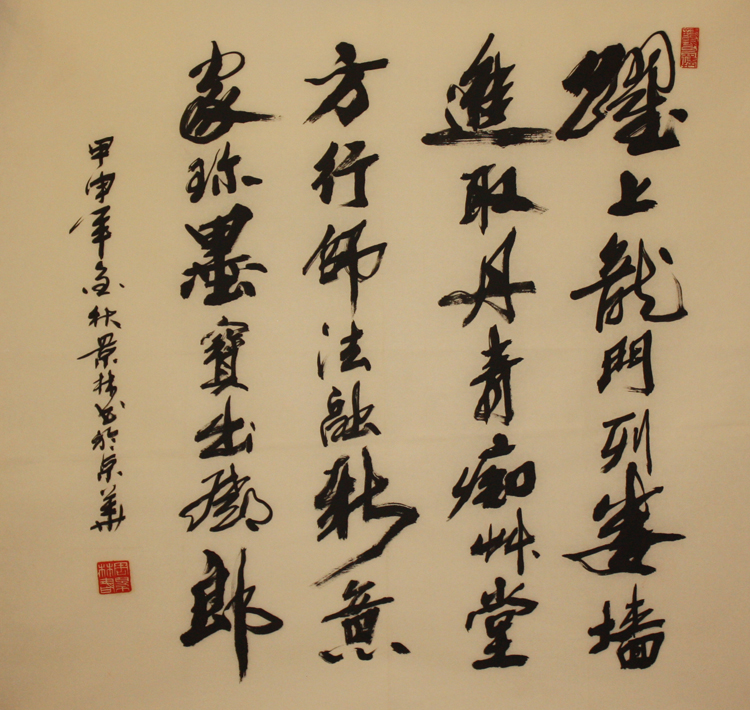 躍上龍門列婁墻
進取丹青痴艸堂
方行師法融新意
家珍墨寶出鄉郎
甲申年金秋景林书於京華